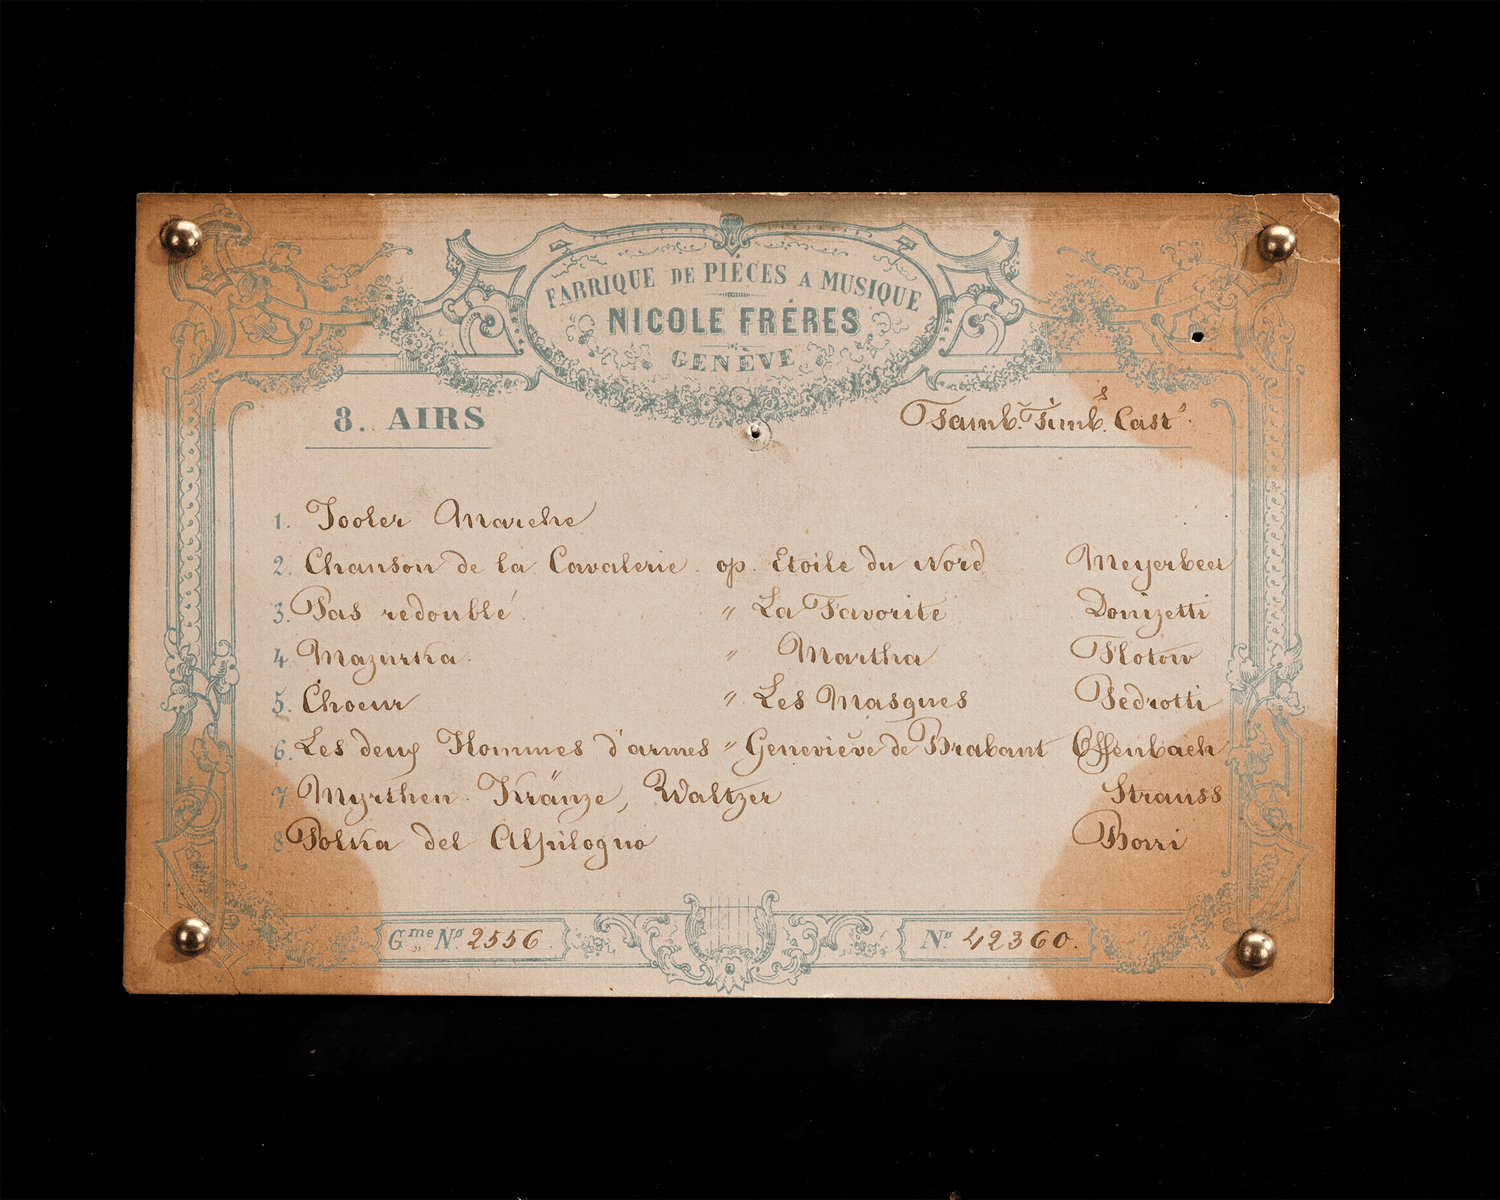 FABRIQUE DE PIÈCES A MUSIQUE
NICOLE FRÈRES
GENÈVE
8. AIRS
Tamb.r Timb.s Cast.s
1. Tooler Marche
2. Chanson de la Cavalerie. op. Etoile du Nord Meyerbeer
3. Pas redoublé. " La Favorite Donizetti
4. Mazurka. " Martha Flotow
5. Choeur " Les Masques Pedrotti
6. Les deux Hommes d'armes " Geneviève de Brabant Offenbach
7 Myrthen Kränze, Waltzer Strauss
8 Polka del Alpilogno Borri
Gme No. 2556.
No. 42360.